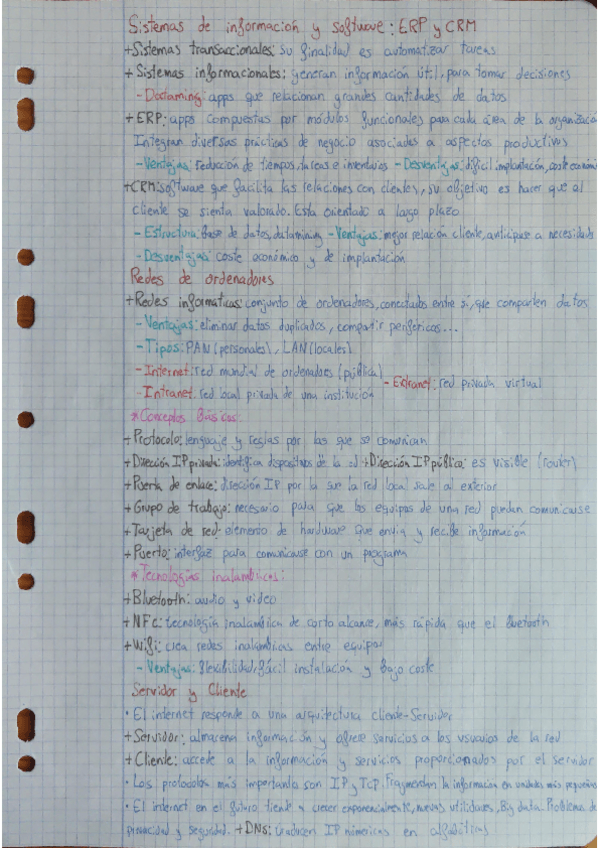 Sistemas de información y software: ERP y CRM
+Sistemas transaccionales: su finalidad es automatizar tareas
+Sistemas informacionales: generan información útil, para tomar decisiones
-Dataming: apps que relacionan grandes cantidades de datos
+ERP: apps compuestas por módulos funcionales para cada área de la organización
Integran diversas prácticas de negocio asociadas a aspectos productivos
-Ventajas: reducción de tiempos, tareas e inventarios -Desventajas: dificil implantación, coste económi
+CRM: software que facilita las relaciones con clientes, su objetivo es hacer que el
cliente se sienta valorado. Esta orientado a largo plazo
-Estructura: Base de datos, datamining -Ventajas: mejor relación cliente, anticiparse a necesidads
-Desventajas: coste económico y de implantación
Redes de ordenadores
+Redes informaticas: conjunto de ordenadores, conectados entre si, que comparten datos
-Ventajas: eliminar datos duplicados, compartir periféricos...
-Tipos: PAN (personales), LAN (locales)
-Internet: red mundial de ordenadores (pública)
-Intranet: red local privada de una institución -Extranet: red privada virtual
*Conceptos Básicos:
+Protocolo: lenguaje y reglas por las que se comunican
+Dirección IP privada: identifica dispositivos de la red +Dirección IP pública: es visible (router)
+Puerta de enlace: dirección IP por la que la red local sale al exterior
+Grupo de trabajo: necesario para que los equipos de una red puedan comunicarse
+Tarjeta de red: elemento de hardware que envia y recibe información
+Puerto: interfaz para comunicarse con un programa
*Tecnologías inalambricas:
+Bluetooth: audio y video
+NFC: tecnología inalambrica de corto alcance, más rápida que el bluetooth
+Wifi: crea redes inalambricas entre equipos
-Ventajas: flexibilidad, fácil instalación y bajo coste
Servidor y Cliente
· El internet responde a una arquitectura cliente-Servidor
+Servidor: almacena información y ofrece servicios a los usuarios de la red
+Cliente: accede a la información y servicios proporcionados por el servidor
· Los protocolos más importantes son IP y TCP. Fragmentan la información en unidades más pequeñas
· El internet en el futuro tiende a crecer exponencialmente, nuevas utilidades, Big data. Problemas de
privacidad y seguridad. +DNS: traducen IP númericas en alfabéticas